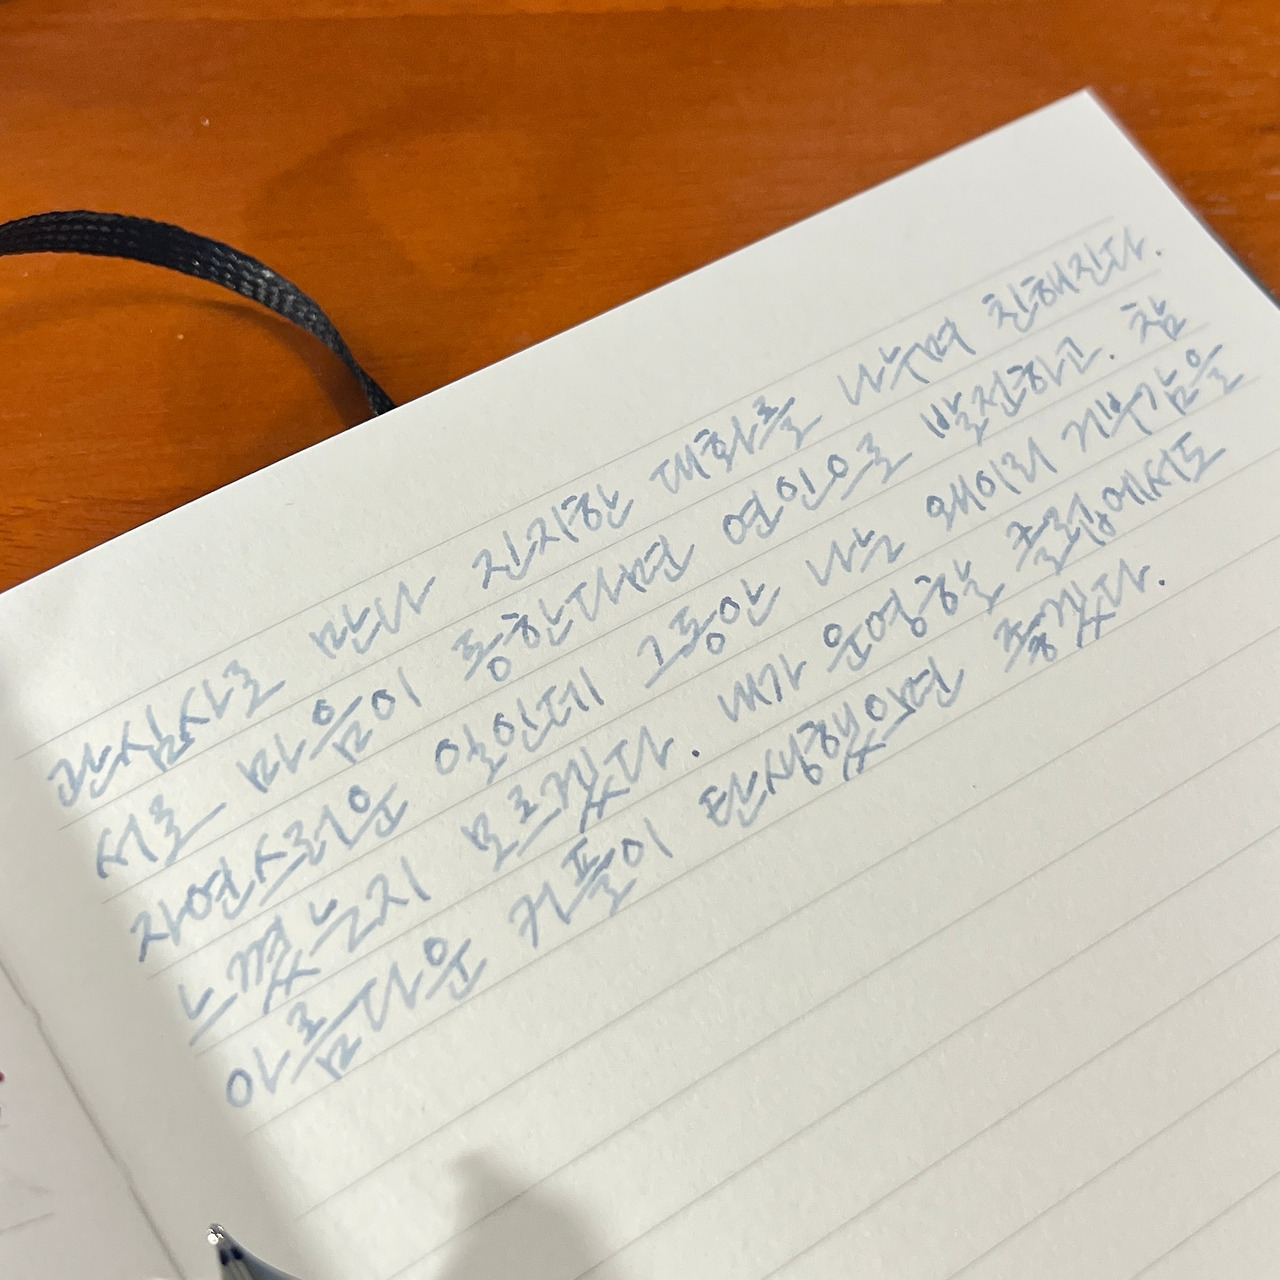 관심사로 만나 진지한 대화를 나누며 친해진다.
서로 마음이 통한다면 연인으로 발전하고. 참
자연스러운 일인데 그동안 나는 왜이리 거부감을
느꼈는지 모르겠다. 내가 운영할 클럽에서도
아름다운 커플이 탄생했으면 좋겠다.